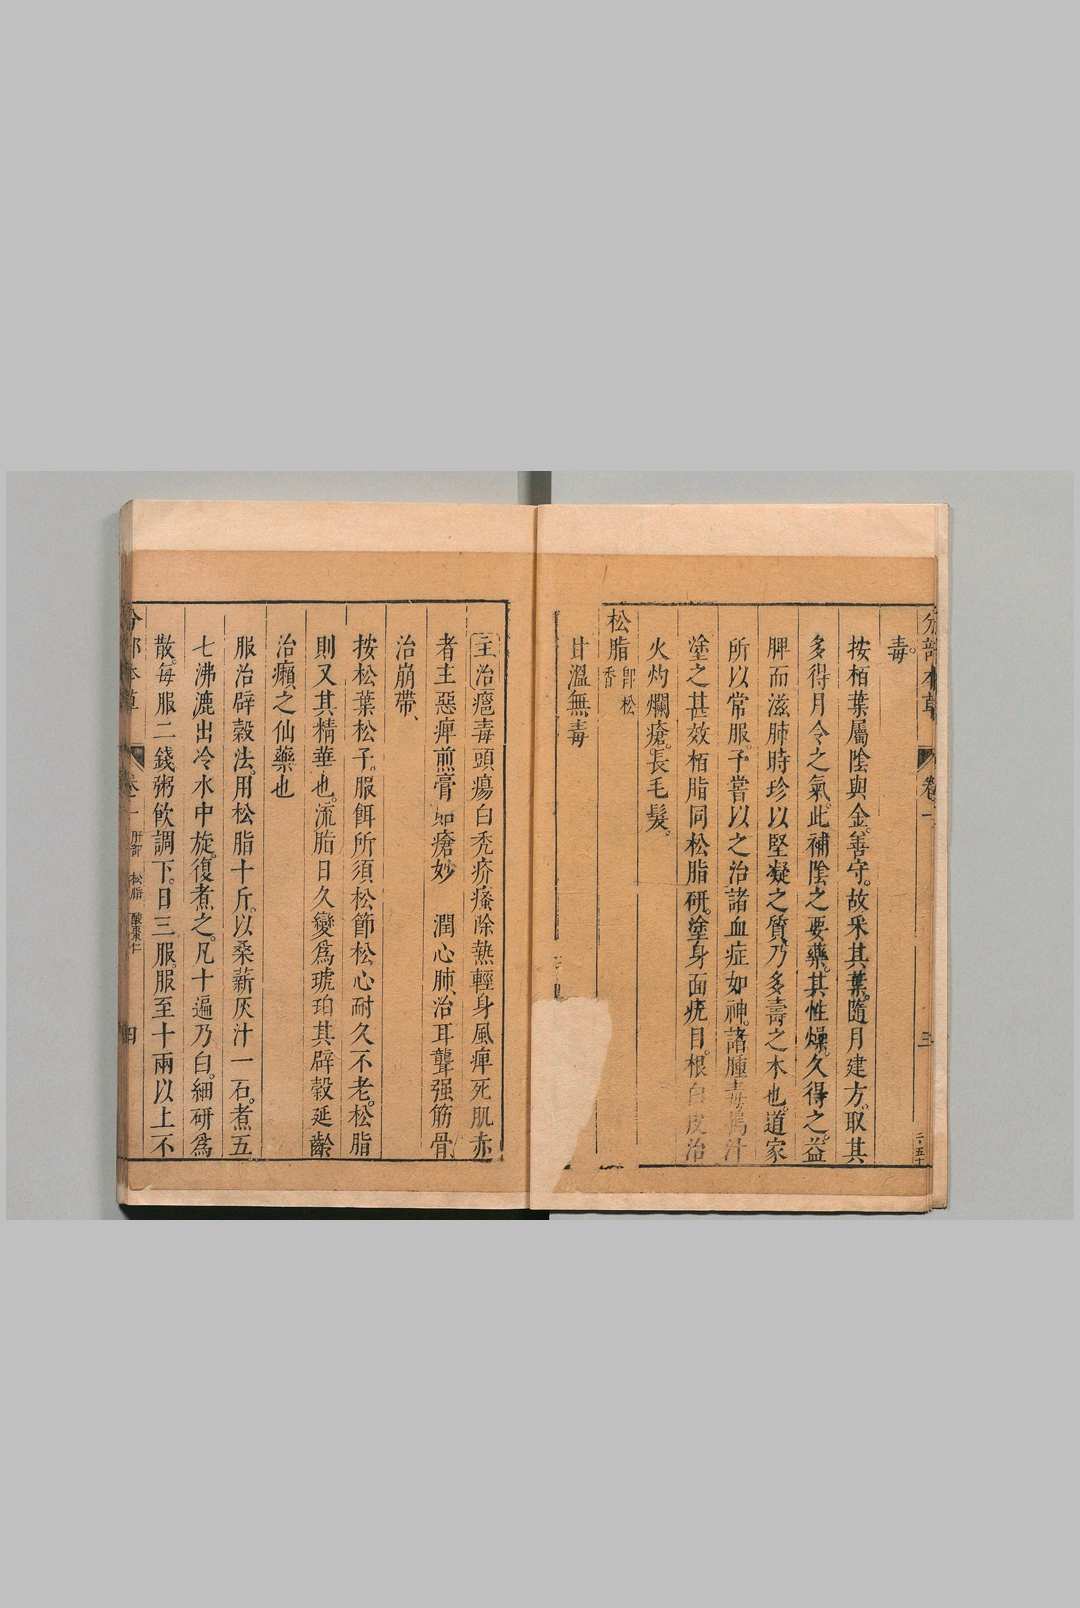 分部本草 卷一 三
毒。
按栢葉屬陰與金。善守。故采其葉。隨月建方。取其
多得月令之氣。此補陰之要藥。其性燥。久得之。益
脾而滋肺時珍以堅凝之質乃多壽之木也。道家
所以常服。予嘗以之治諸血症如神。諸腫毒搗汁
塗之甚效栢脂同松脂研。塗身面疣目。根白皮治
火灼爛瘡。長毛髮。
松脂 即松香
甘溫無毒
主治癰毒頭瘍白禿疥瘙除熱輕身風痺死肌赤
者主惡痺煎膏如瘡妙 潤心肺治耳聾强筋骨
治崩帶、
按松葉松子。服餌所須松節松心耐久不老。松脂
則又其精華也。流脂日久變爲琥珀其辟穀延齡
治癩之仙藥也
服治辟穀法。用松脂十斤。以桑薪灰汁一石。煮五
七沸漉出冷水中旋。復煮之。凡十遍乃白。細研爲
散。每服二錢粥飲調下。日三服。服至十兩以上不
分部本草 卷一 肝部 松脂 酸棗仁 四